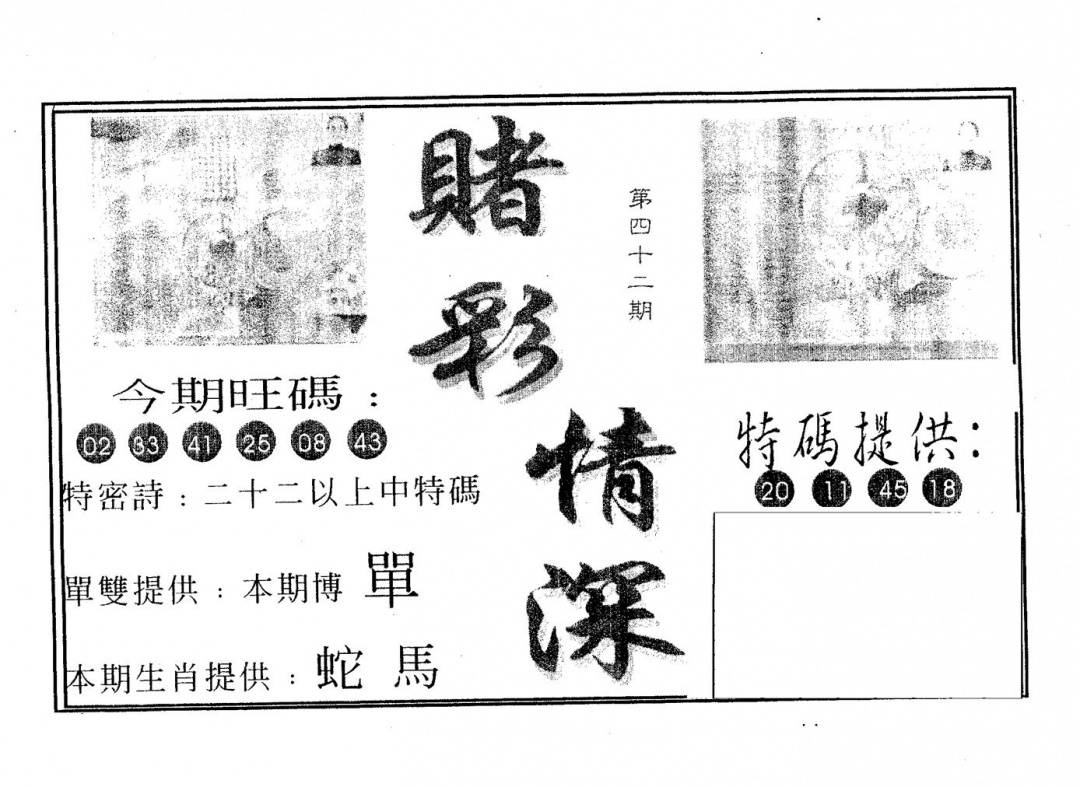 賭彩情深
第四十二期
今期旺碼：
02 33 41 25 08 43
特密詩：二十二以上中特碼
單雙提供：本期博 單
本期生肖提供：蛇 馬
特碼提供：
20 11 45 18